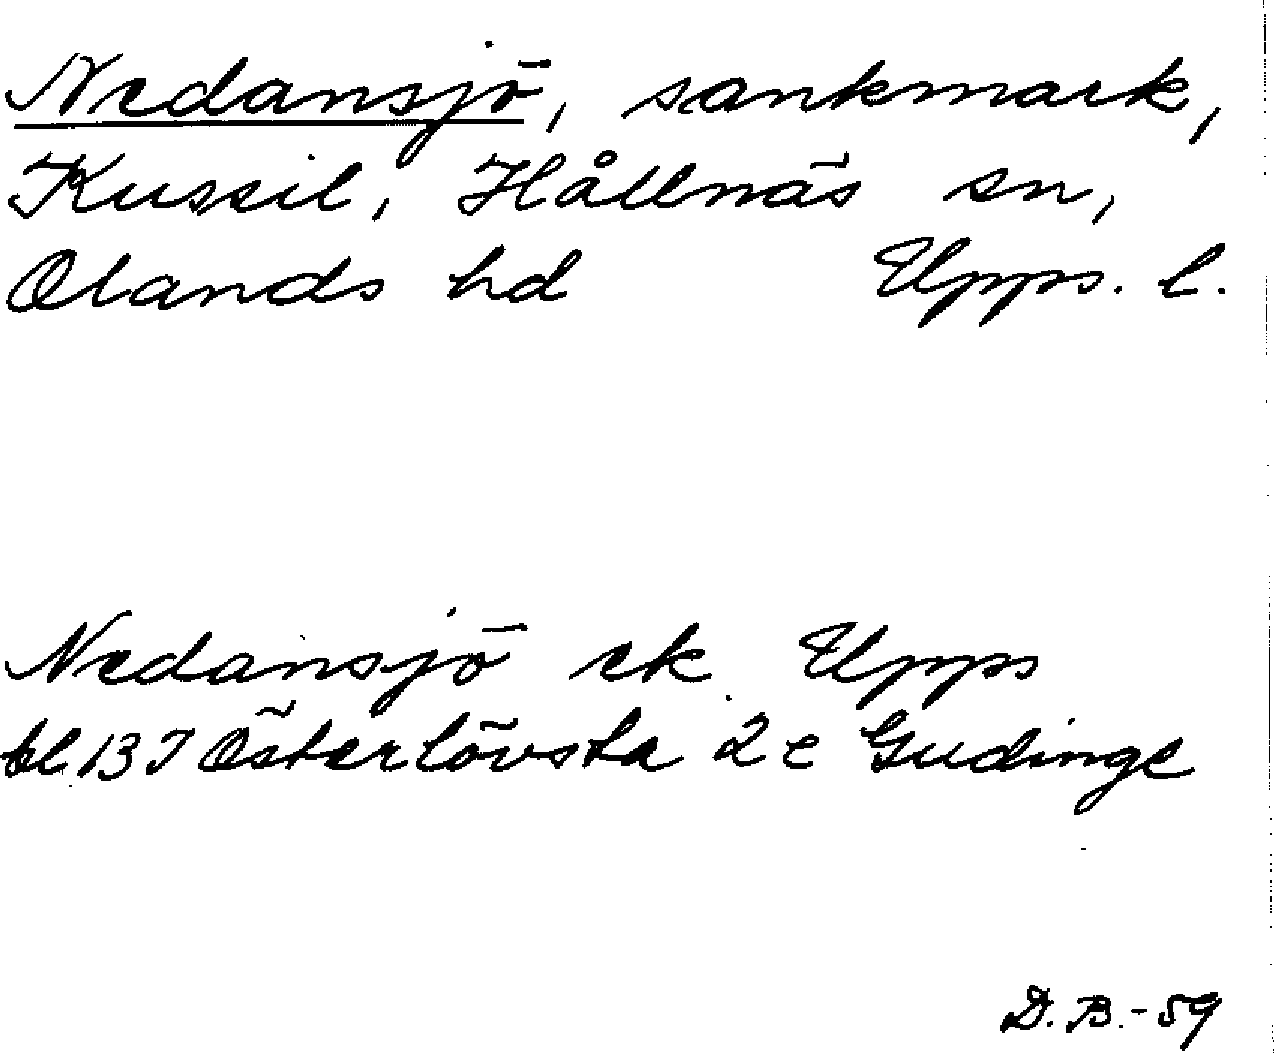 Nedansjö, sankmark,
Kussil, Hållnäs sn,
Olands hd Upps. l.
Nedansjö ek Upps
bl 13J Österlövsta 2 e Gudinge
D.B.-59